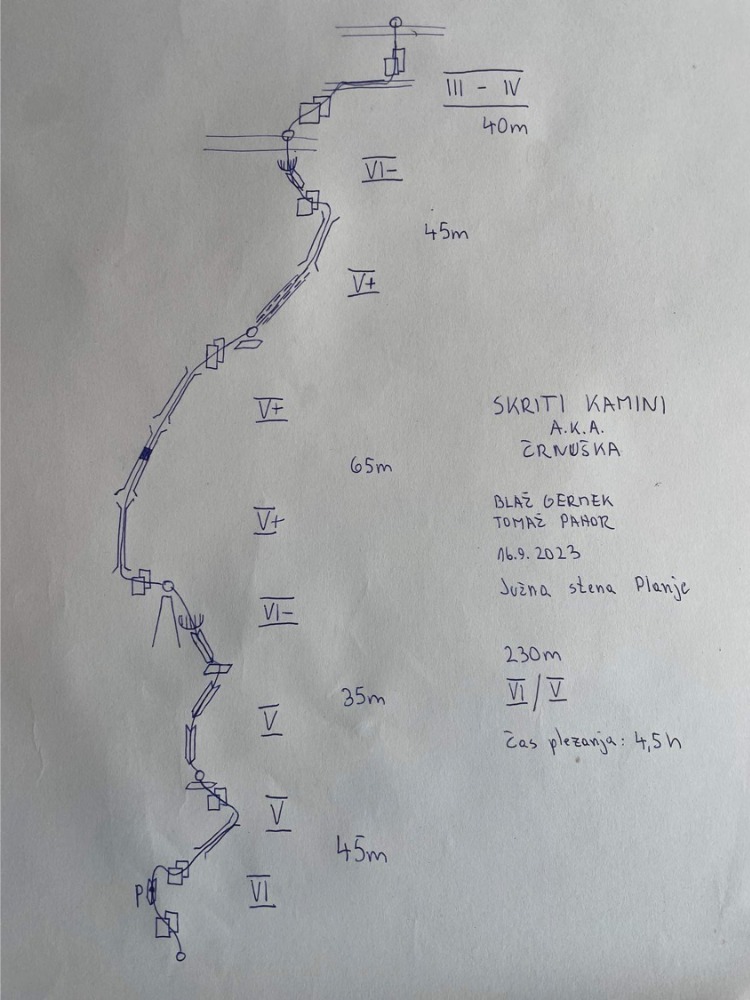 III - IV
40m
VI-
45m
V+
V+
65m
V+
VI-
35m
V
V
45m
P
VI
SKRITI KAMINI
A.K.A.
ČRNUŠKA
BLAŽ GERMEK
TOMAŽ PAHOR
16.9.2023
Južna stena Planje
230m
VI/V
čas plezanja: 4,5h